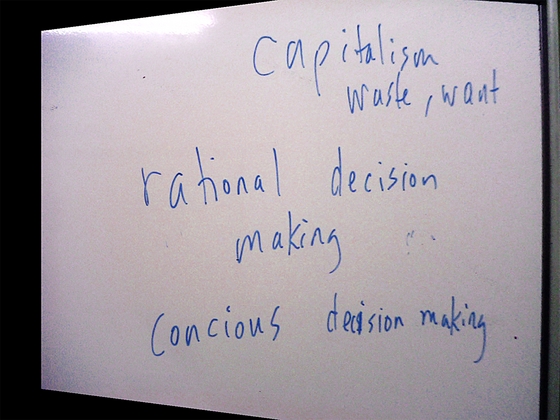 capitalism
waste, want
rational decision
making
concious decision making